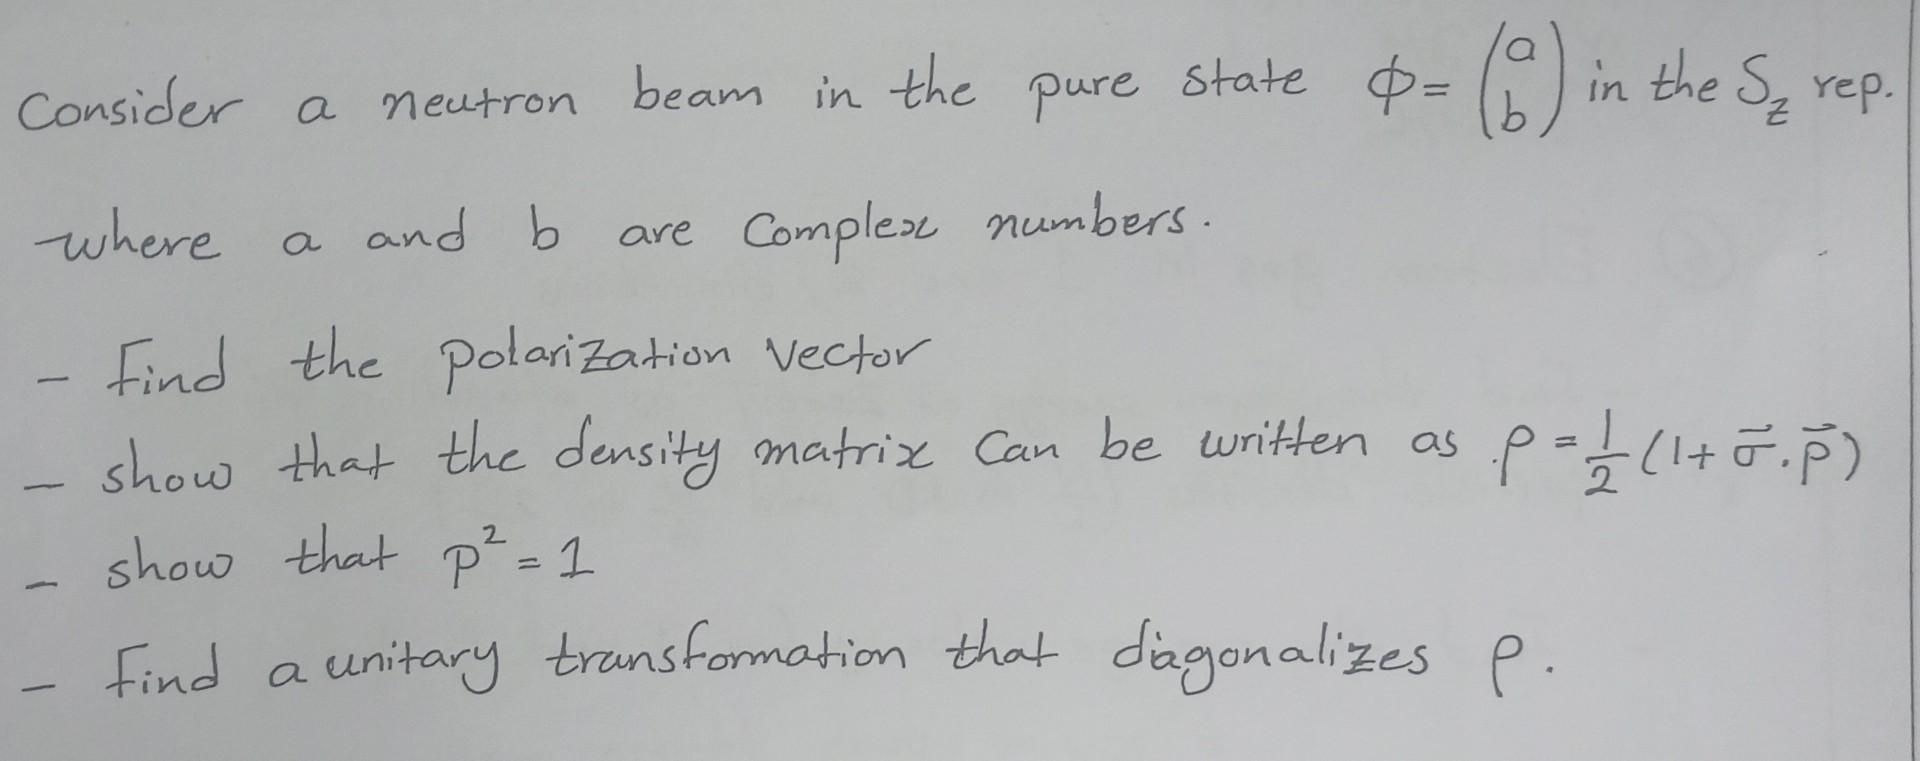 Consider a neutron beam in the pure state ϕ = (a b) in the S_z rep.
where a and b are complex numbers.
- Find the polarization vector
- show that the density matrix can be written as ρ = 1/2 (1 + σ⃗ . p⃗)
- show that p² = 1
- Find a unitary transformation that diagonalizes ρ.